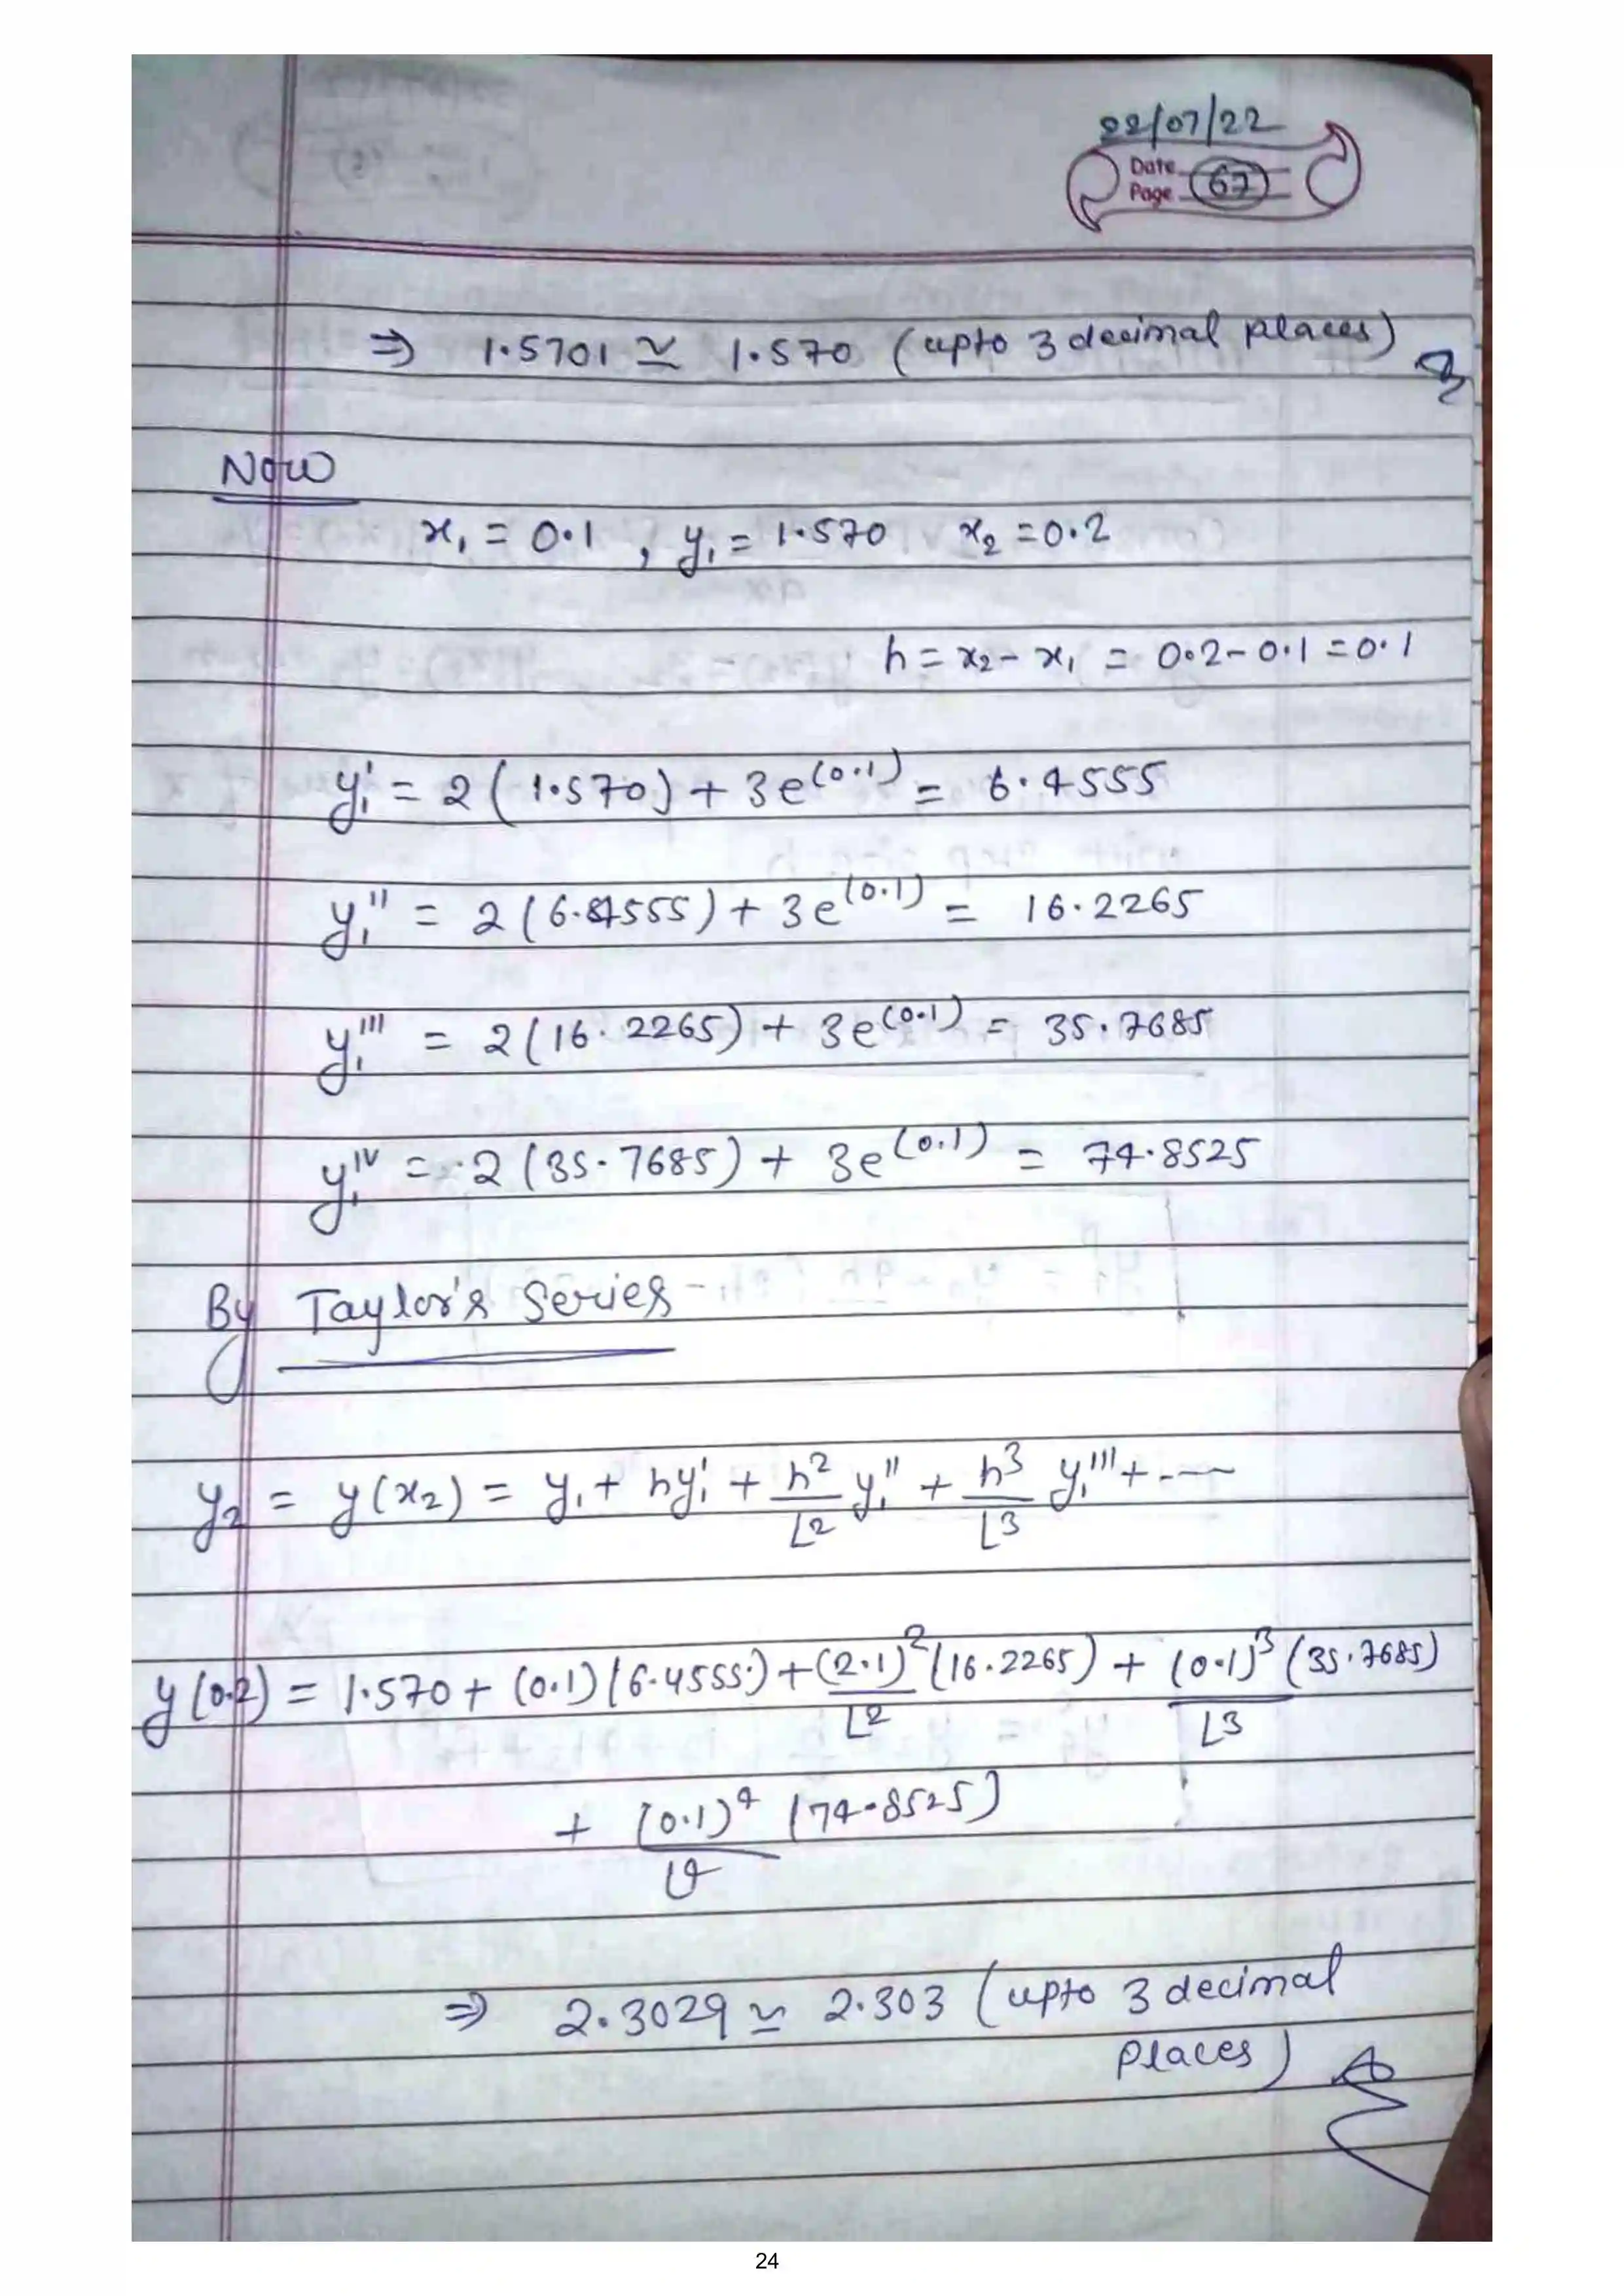 22/07/22
Date
Page 67
⇒ 1.5701 ≃ 1.570 (upto 3 decimal places)
Now
x₁ = 0.1 , y₁ = 1.570 x₂ = 0.2
h = x₂ - x₁ = 0.2 - 0.1 = 0.1
y₁' = 2 (1.570) + 3e^(0.1) = 6.4555
y₁'' = 2 (6.4555) + 3e^(0.1) = 16.2265
y₁''' = 2 (16.2265) + 3e^(0.1) = 35.7685
y₁^IV = 2 (35.7685) + 3e^(0.1) = 74.8525
By Taylor's Series-
y₂ = y(x₂) = y₁ + hy₁' + h²/⌊2 y₁'' + h³/⌊3 y₁''' + ----
y(0.2) = 1.570 + (0.1)(6.4555) + (2.1)²/⌊2 (16.2265) + (0.1)³/⌊3 (35.7685)
+ (0.1)⁴/⌊4 (74.8525)
⇒ 2.3029 ≃ 2.303 (upto 3 decimal
places)
24